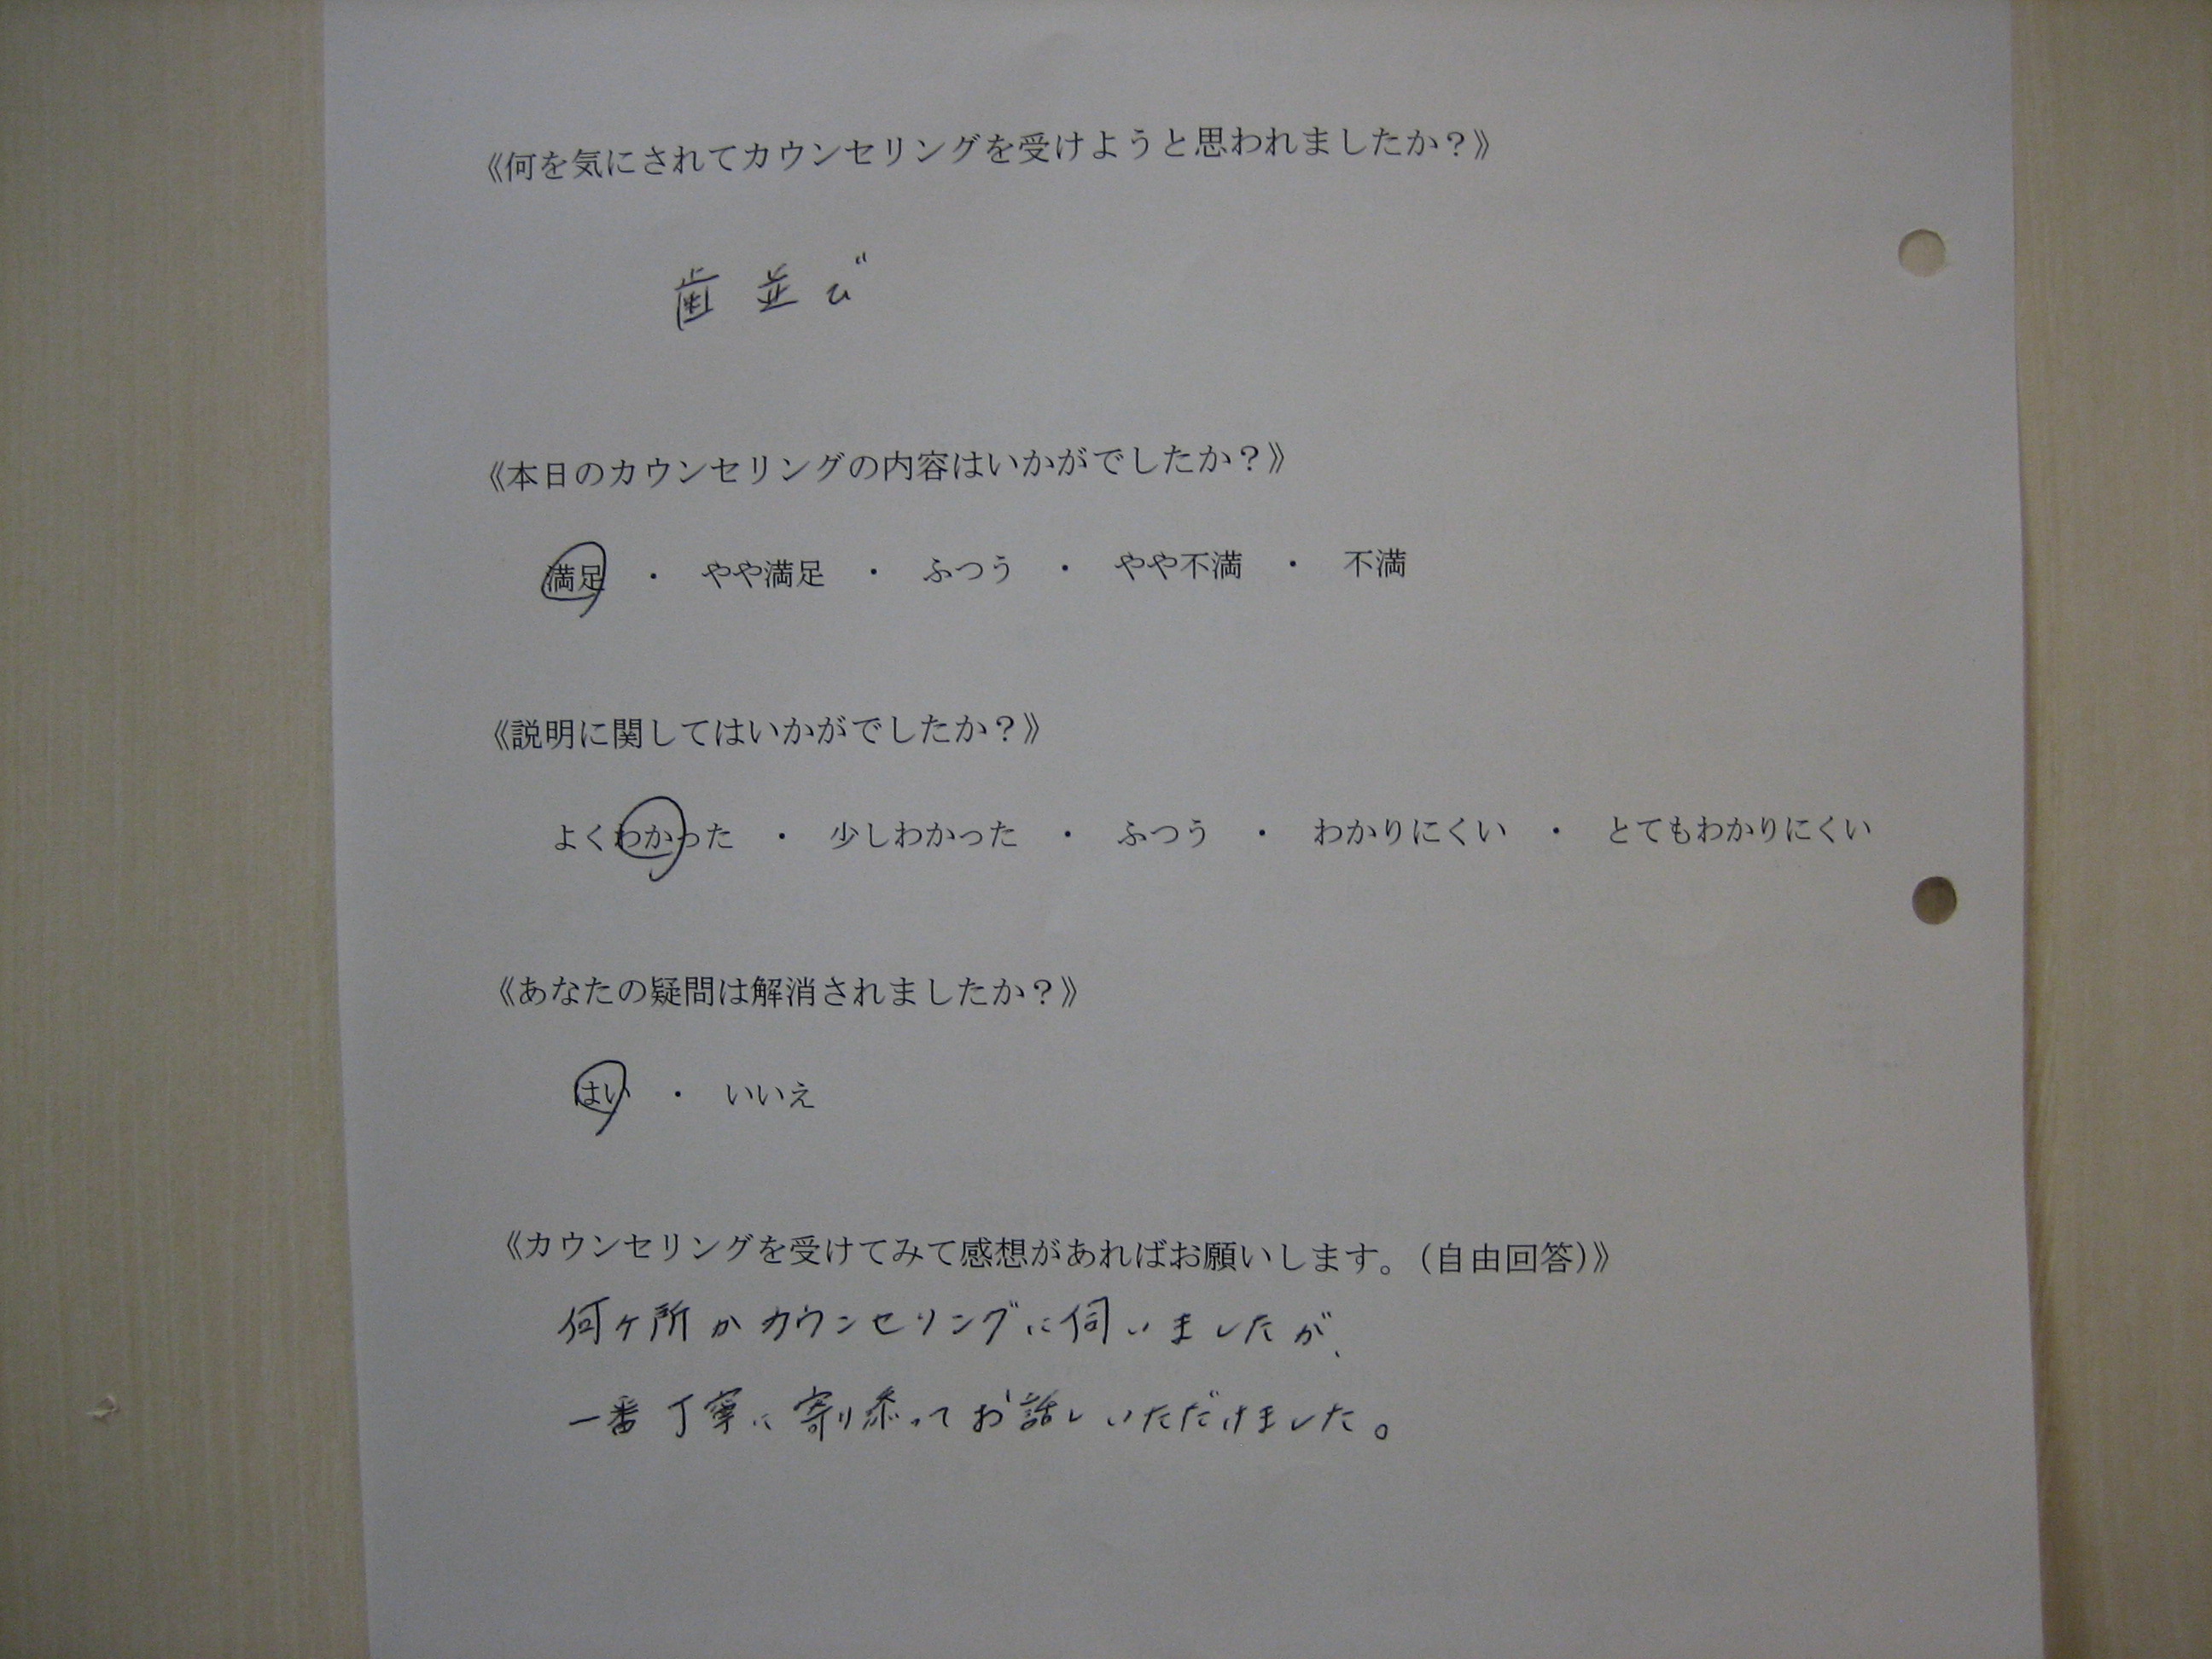 《何を気にされてカウンセリングを受けようと思われましたか？》
歯並び
《本日のカウンセリングの内容はいかがでしたか？》
満足　・　やや満足　・　ふつう　・　やや不満　・　不満
《説明に関してはいかがでしたか？》
よくわかった　・　少しわかった　・　ふつう　・　わかりにくい　・　とてもわかりにくい
《あなたの疑問は解消されましたか？》
はい　・　いいえ
《カウンセリングを受けてみて感想があればお願いします。（自由回答）》
何ヶ所かカウンセリングに伺いましたが、
一番丁寧に寄り添ってお話しいただけました。